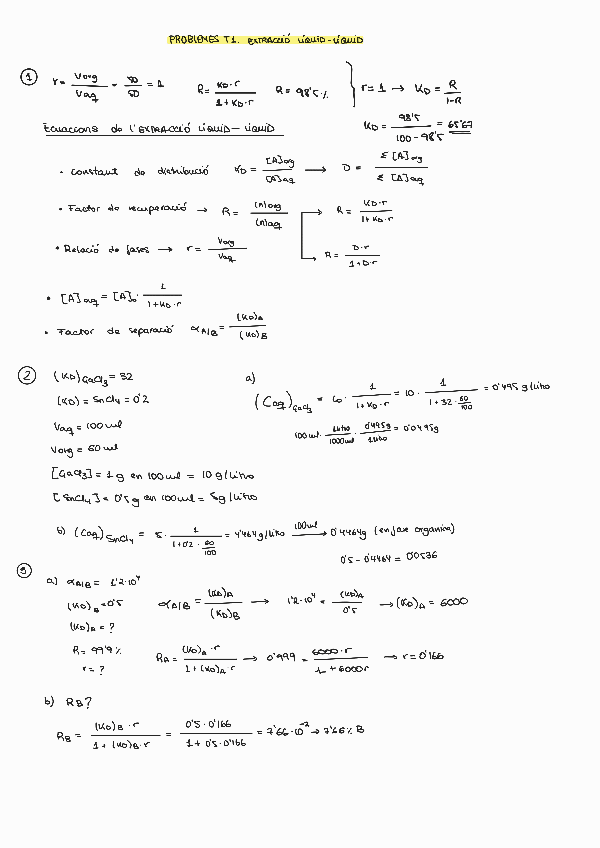 PROBLEMES T1. EXTRACCIÓ LÍQUID-LÍQUID
① r = Vorg / Vaq = 50 / 50 = 1   R = KD·r / 1+KD·r   R = 98'5%   r=1 → KD = R / 1-R
KD = 98'5 / 100-98'5 = 65'67
Equacions de l'EXTRACCIÓ LÍQUID-LÍQUID
• Constant de distribució KD = [A]org / [A]aq → D = Σ [A]org / Σ [A]aq
• Factor de recuperació → R = (n)org / (n)aq → R = KD·r / 1+KD·r
• Relació de fases → r = Vorg / Vaq   R = D·r / 1+D·r
• [A]aq = [A]o · 1 / 1+KD·r
• Factor de separació αA/B = (KD)A / (KD)B
② (KD)GaCl3 = 32   a)
(KD) = SnCl4 = 0'2   (Caq)GaCl3 = 10 · 1 / 1+KD·r = 10 · 1 / 1+32·60/100 = 0'495 g/litro
Vaq = 100ml   100ml · 1litro / 1000ml · 0'495g / 1litro = 0'0495g
Vorg = 60ml
[GaCl3] = 1g en 100ml = 10g/litro
[SnCl4] = 0'5g en 100ml = 5g/litro
b) (Caq)SnCl4 = 5 · 1 / 1+0'2·60/100 = 4'464g/litro → 100ml 0'4464g (en fase organica)
0'5 - 0'4464 = 0'0536
③
a) αA/B = 1'2·10⁴
(KD)B = 0'5   αA/B = (KD)A / (KD)B → 1'2·10⁴ = (KD)A / 0'5 → (KD)A = 6000
(KD)A = ?
R = 99'9%   RA = (KD)A·r / 1+(KD)A·r → 0'999 = 6000·r / 1+6000r → r = 0'166
r = ?
b) RB?
RB = (KD)B·r / 1+(KD)B·r = 0'5·0'166 / 1+0'5·0'166 = 7'66·10⁻² → 7'66% B